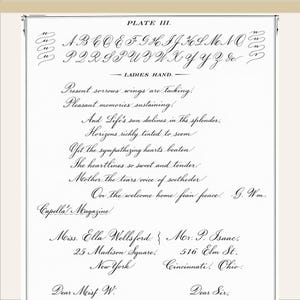 PLATE III.
A B C D E F G H I J K L M N O
P Q R S T U V W X Y Z &c.
LADIES HAND.
Present sorrows wings are tucking,
Pleasant memories sustaining,
And Life's son in the splendor,
Horizons richly tinted to seem
Yet the sympathizing hearts beaten
The heartlines so sweet and tender
Mother the tears voice of
On the welcome home from peace G. Wm.
Capella Magazine
Miss. Ella Wellsford, { Mr. P. Isaac,
25 Madison Square, 516 Elm St.
New York Cincinnati, Ohio.
Dear Miss W. Dear Sir,